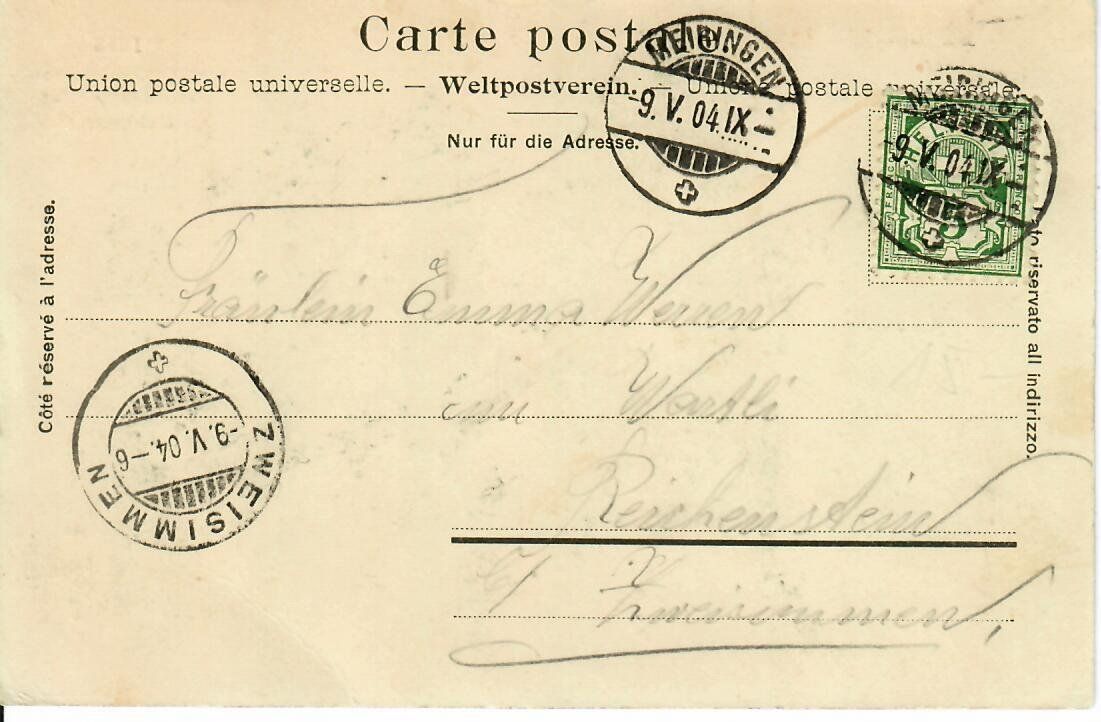 Carte postale
Union postale universelle. — Weltpostverein. — Unione postale universale
Nur für die Adresse.
MEIRINGEN
-9. V. 04. IX-
MEIRINGEN
-9. V. 04. IX-
HELVETIA
FRANCO
5
Côté réservé à l'adresse.
Lato riservato all indirizzo.
Fräulein Emma Werren
im
Reichenstein
b/ Zweisimmen,
ZWEISIMMEN
-9. V. 04.-6